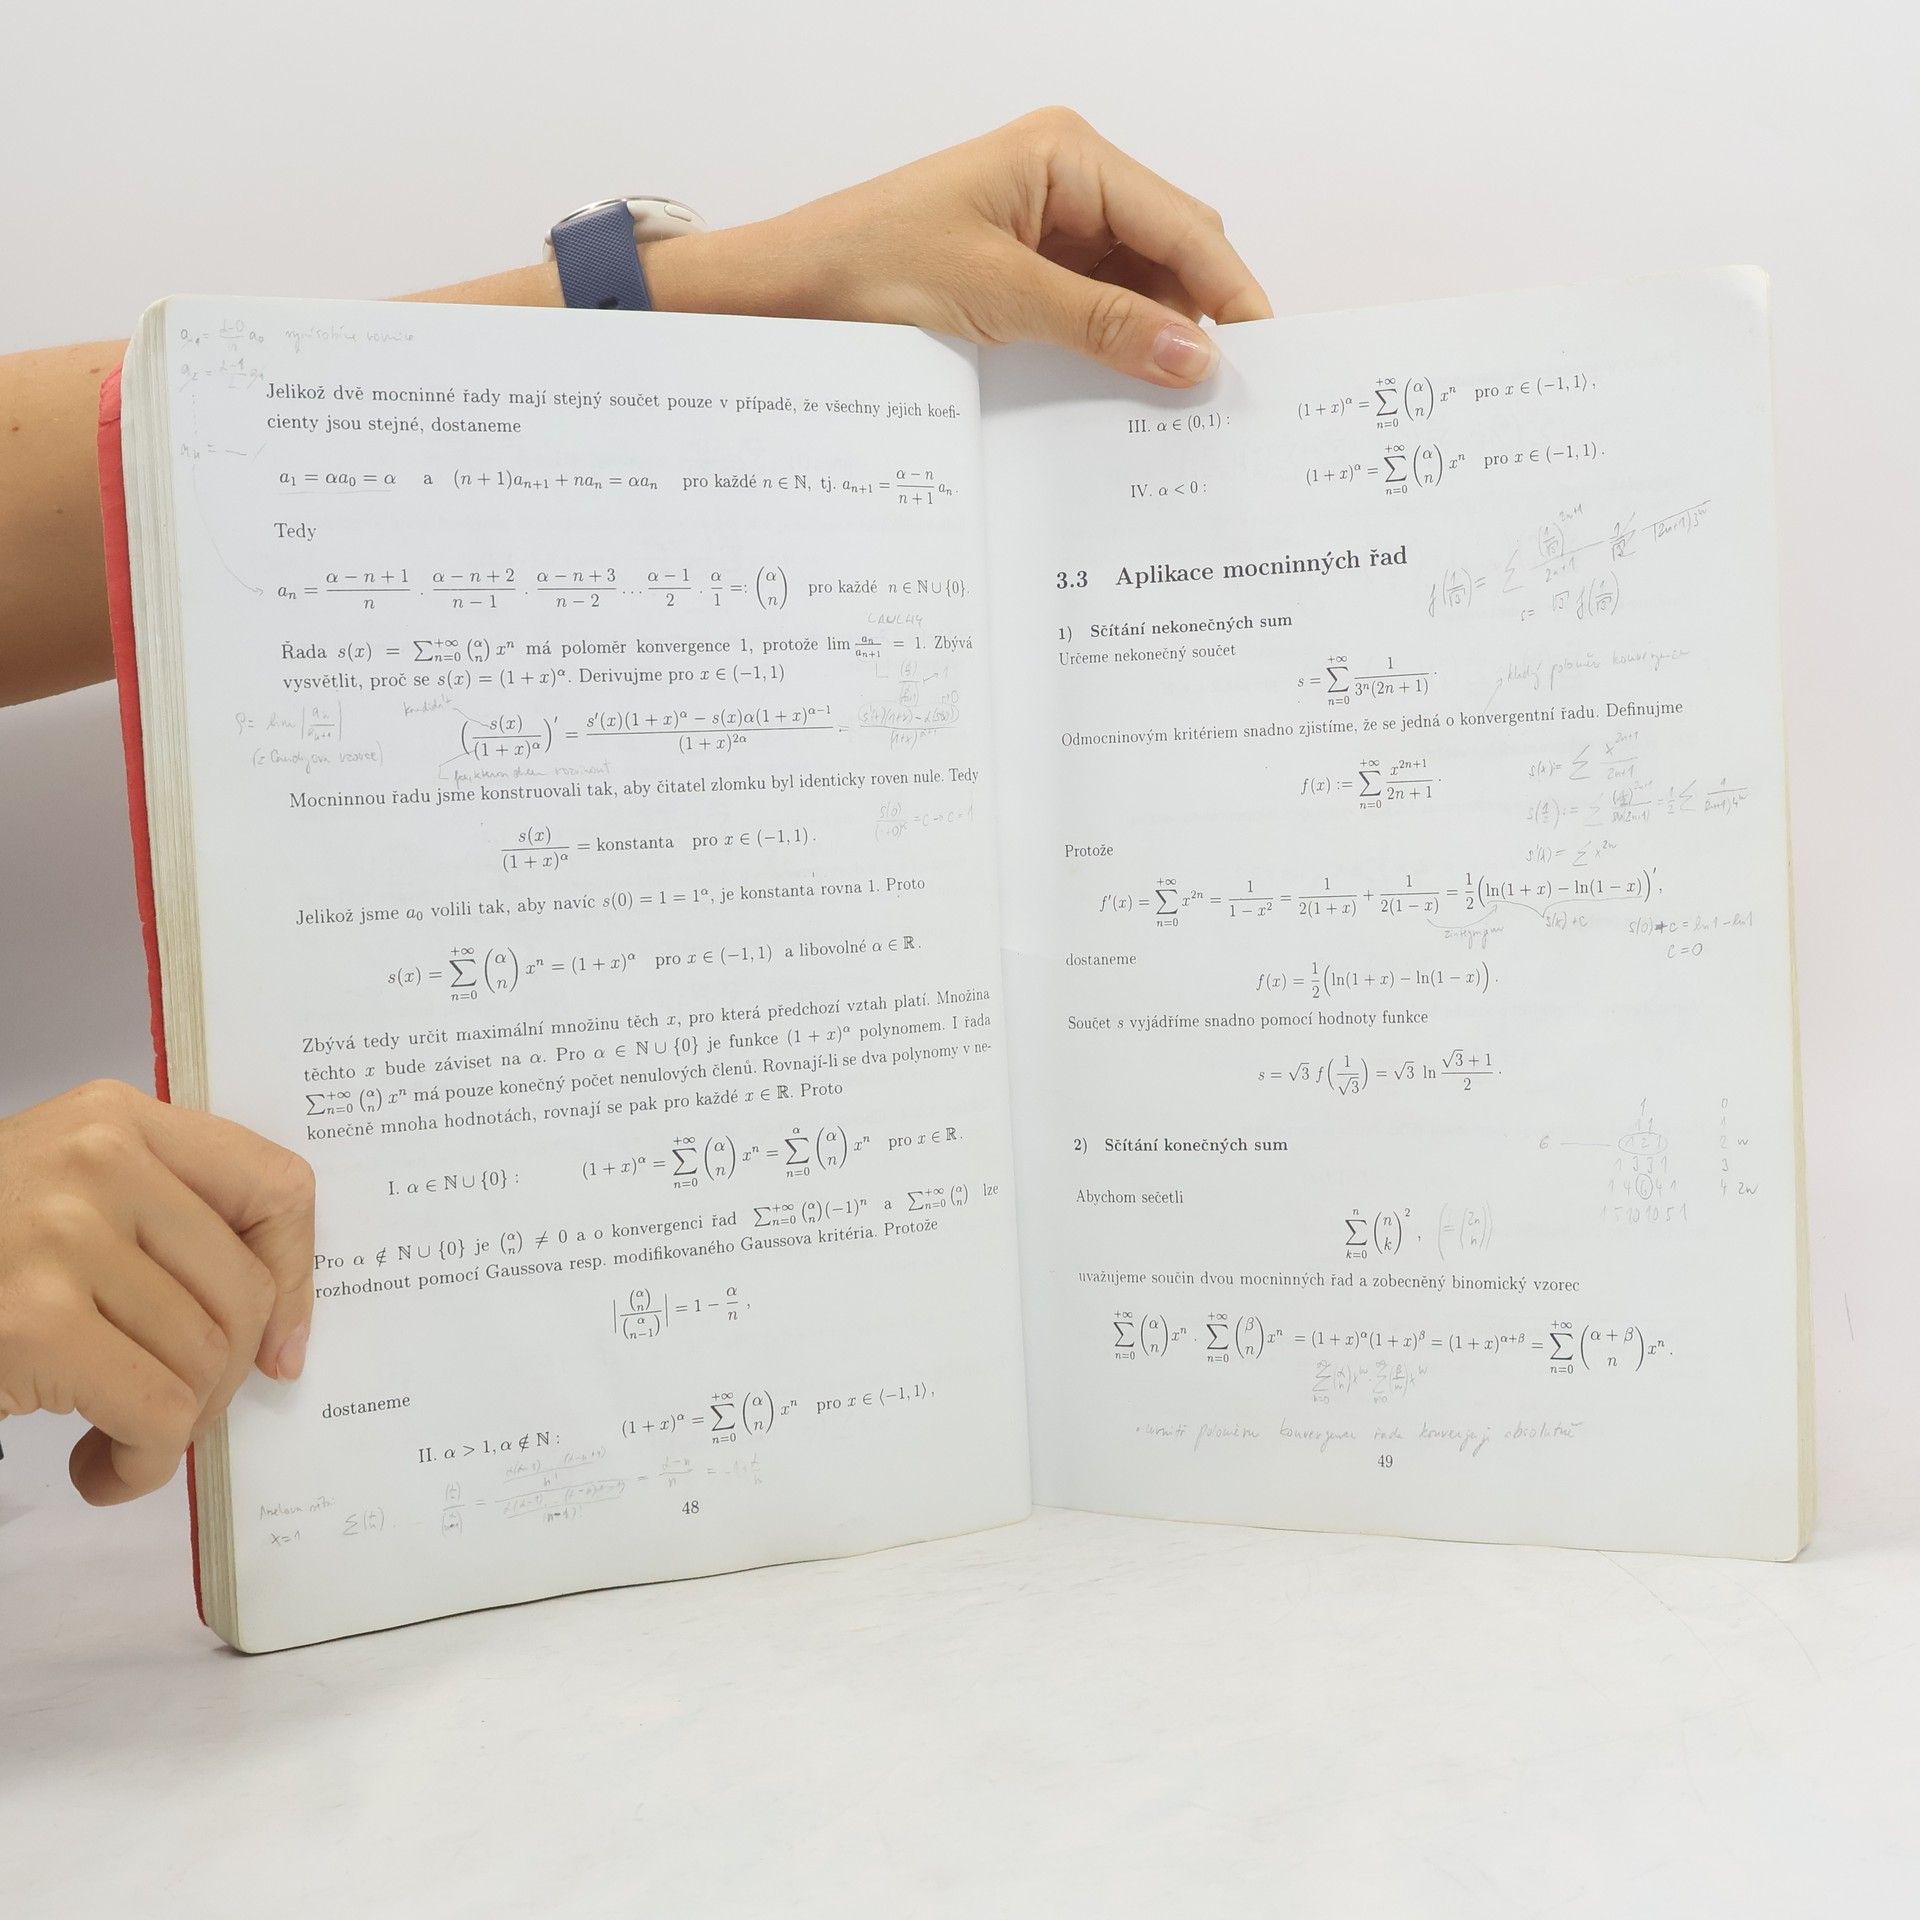 Jelikož dvě mocninné řady mají stejný součet pouze v případě, že všechny jejich koefi-
cienty jsou stejné, dostaneme
a₁ = αa₀ = α a (n + 1)aₙ₊₁ + naₙ = αaₙ pro každé n ∈ ℕ, tj. aₙ₊₁ = \frac{α − n}{n + 1} aₙ.
Tedy
aₙ = \frac{α − n + 1}{n} · \frac{α − n + 2}{n − 1} · \frac{α − n + 3}{n − 2} … \frac{α − 1}{2} · \frac{α}{1} =: \binom{α}{n} pro každé n ∈ ℕ ∪ {0}.
Řada s(x) = \sum_{n=0}^{+∞} \binom{α}{n} xⁿ má poloměr konvergence 1, protože lim \frac{aₙ}{aₙ₊₁} = 1. Zbývá
vysvětlit, proč se s(x) = (1 + x)^α. Derivujme pro x ∈ (−1, 1)
kandidát
(\frac{s(x)}{(1 + x)^α})′ = \frac{s′(x)(1 + x)^α − s(x)α(1 + x)^{α−1}}{(1 + x)^{2α}}
Mocninnou řadu jsme konstruovali tak, aby čitatel zlomku byl identicky roven nule. Tedy
\frac{s(x)}{(1 + x)^α} = konstanta pro x ∈ (−1, 1).
Jelikož jsme a₀ volili tak, aby navíc s(0) = 1 = 1^α, je konstanta rovna 1. Proto
s(x) = \sum_{n=0}^{+∞} \binom{α}{n} xⁿ = (1 + x)^α pro x ∈ (−1, 1) a libovolné α ∈ ℝ.
Zbývá tedy určit maximální množinu těch x, pro která předchozí vztah platí. Množina
těchto x bude záviset na α. Pro α ∈ ℕ ∪ {0} je funkce (1 + x)^α polynomem. I řada
\sum_{n=0}^{+∞} \binom{α}{n} xⁿ má pouze konečný počet nenulových členů. Rovnají-li se dva polynomy v ne-
konečně mnoha hodnotách, rovnají se pak pro každé x ∈ ℝ. Proto
I. α ∈ ℕ ∪ {0} : (1 + x)^α = \sum_{n=0}^{+∞} \binom{α}{n} xⁿ = \sum_{n=0}^{α} \binom{α}{n} xⁿ pro x ∈ ℝ.
Pro α ∉ ℕ ∪ {0} je \binom{α}{n} ≠ 0 a o konvergenci řad \sum_{n=0}^{+∞} \binom{α}{n}(−1)ⁿ a \sum_{n=0}^{+∞} \binom{α}{n} lze
rozhodnout pomocí Gaussova resp. modifikovaného Gaussova kritéria. Protože
|\frac{\binom{α}{n}}{\binom{α}{n−1}}| = 1 − \frac{α}{n},
dostaneme
II. α > 1, α ∉ ℕ : (1 + x)^α = \sum_{n=0}^{+∞} \binom{α}{n} xⁿ pro x ∈ ⟨−1, 1⟩,
x=1
48
III. α ∈ (0, 1) : (1 + x)^α = \sum_{n=0}^{+∞} \binom{α}{n} xⁿ pro x ∈ (−1, 1⟩,
IV. α < 0 : (1 + x)^α = \sum_{n=0}^{+∞} \binom{α}{n} xⁿ pro x ∈ (−1, 1).
3.3 Aplikace mocninných řad
1) Sčítání nekonečných sum
Určeme nekonečný součet
s = \sum_{n=0}^{+∞} \frac{1}{3ⁿ(2n + 1)}.
Odmocninovým kritériem snadno zjistíme, že se jedná o konvergentní řadu. Definujme
f(x) := \sum_{n=0}^{+∞} \frac{x^{2n+1}}{2n + 1}.
s(x) = ∑ \frac{x^{2n+1}}{2n+1}
Protože
s′(x) = ∑ x^{2n}
f′(x) = \sum_{n=0}^{+∞} x^{2n} = \frac{1}{1 − x²} = \frac{1}{2(1 + x)} + \frac{1}{2(1 − x)} = \frac{1}{2}(ln(1 + x) − ln(1 − x))′,
s(x)+c s(0)+c = ln 1 − ln 1
c=0
dostaneme
f(x) = \frac{1}{2}(ln(1 + x) − ln(1 − x)).
Součet s vyjádříme snadno pomocí hodnoty funkce
s = √3 f(\frac{1}{√3}) = √3 ln \frac{√3 + 1}{2}.
1 0
1 1 1
6 1 2 1 2 n
1 3 3 1 3
1 4 6 4 1 4 2n
1 5 10 10 5 1
2) Sčítání konečných sum
Abychom sečetli
\sum_{k=0}^{n} \binom{n}{k}², (= \binom{2n}{n})
uvažujeme součin dvou mocninných řad a zobecněný binomický vzorec
\sum_{n=0}^{+∞} \binom{α}{n} xⁿ · \sum_{n=0}^{+∞} \binom{β}{n} xⁿ = (1 + x)^α(1 + x)^β = (1 + x)^{α+β} = \sum_{n=0}^{+∞} \binom{α + β}{n} xⁿ.
• uvnitř poloměru konvergence řada konverguje absolutně
49